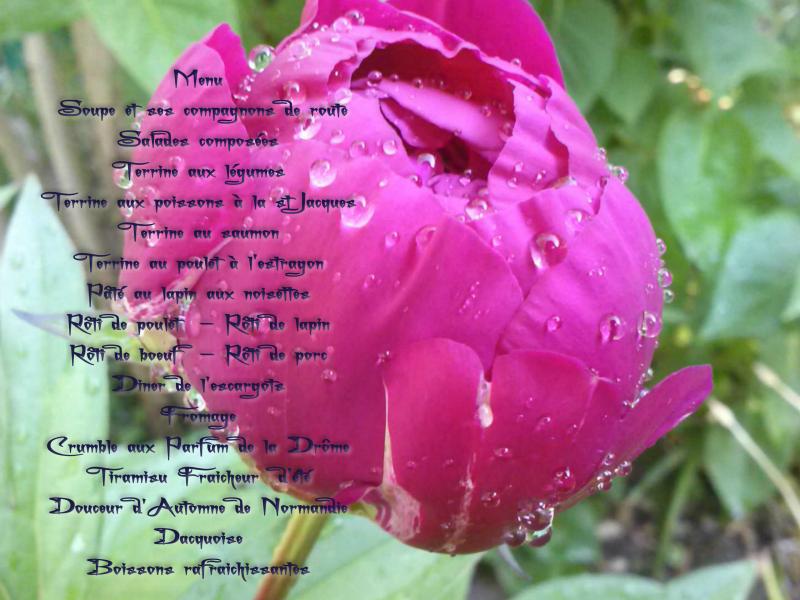 Menu
Soupe et ses compagnons de route
Salades composées
Terrine aux légumes
Terrine aux poissons à la st Jacques
Terrine au saumon
Terrine au poulet à l'estragon
Pâté au lapin aux noisettes
Rôti de poulet - Rôti de lapin
Rôti de boeuf - Rôti de porc
Diner de l'escargots
Fromage
Crumble aux Parfum de la Drôme
Tiramisu Fraicheur d'été
Douceur d'Automne de Normandie
Dacquoise
Boissons rafraichissantes